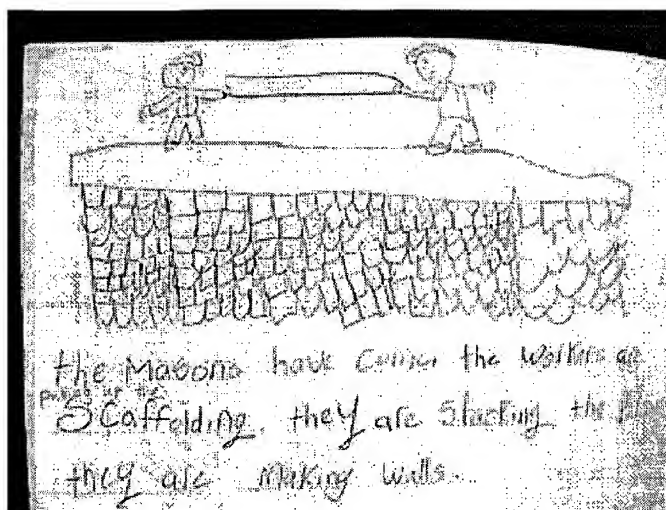 the Masons have come, the workers
up the
Scaffolding. they are Starting the
they are Making walls.